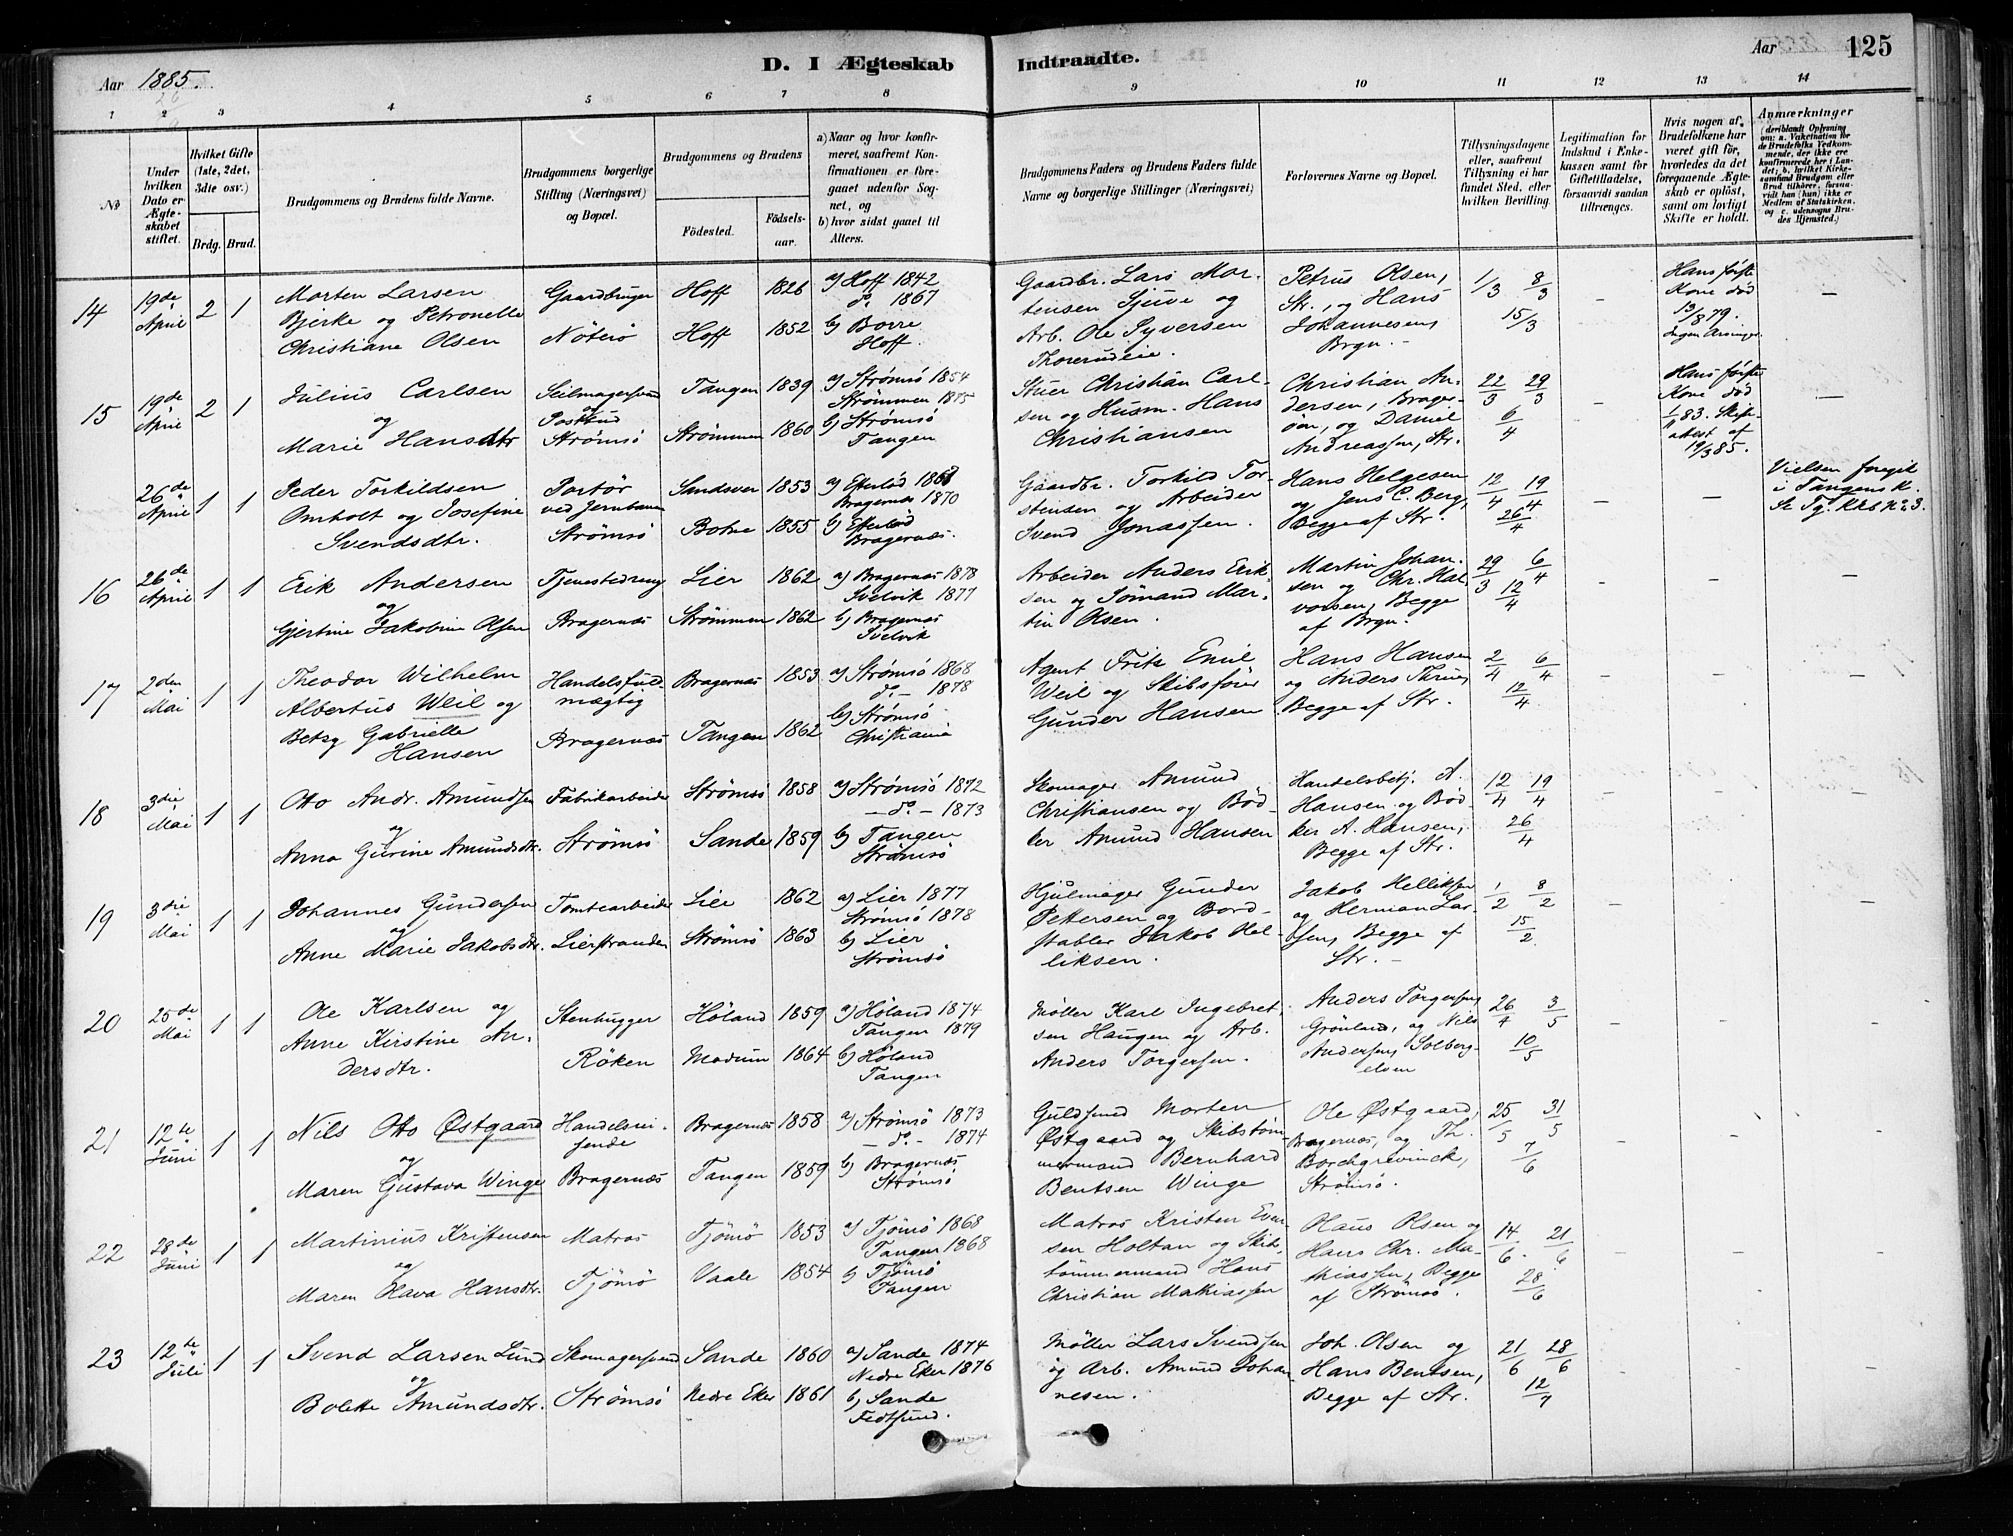 Aar 1885.
D. I Ægteskab Indtraadte.
Aar 125
1 2 3 4 5 6 7 8 9 10 11 12 13 14
No
Under hvilken Dato er Ægteskabet stiftet.
Hvilket Gifte (1ste, 2det, 3die osv.)
Brdg. Brud.
Brudgommens og Brudens fulde Navne.
Brudgommens borgerlige Stilling (Næringsvei) og Bopæl.
Brudgommens og Brudens
Födested.
Födselsaar.
a) Naar og hvor konfirmeret, saafremt Konfirmationen er foregaaet udenfor Sognet, og
b) hvor sidst gaaet til Alters.
Brudgommens Faders og Brudens Faders fulde Navne og borgerlige Stillinger (Næringsvei)
Forlovernes Navne og Bopæl.
Tillysningsdagene eller, saafremt Tillysning ei har fundet Sted, efter hvilken Bevilling.
Legitimation for Indskud i Enkekassen samt for Giftetilladelse, forsaavidt saadan tiltrænges.
Hvis nogen af Brudefolkene har været gift för, hvorledes da det foregaaende Ægteskab er oplöst, samt om lovligt Skifte er holdt.
Anmærkninger
(deriblandt Oplysning om: a. Vakcination for de Brudefolks Vedkommende, der ikke ere konfirmerede her i Landet; b. hvilket Kirkesamfund Brudgom eller Brud tilhörer, forsaavidt han (hun) ikke er Medlem af Statskirken, og c. udensogns Brudes Hjemsted.)
14 19de April 2 1 Morten Larsen Bjerke og Petronelle Christiane Olsen
Gaardbruger Nöterö
Hoff 1826
Hoff 1852
a) Hoff 1842 do. 1867
b) Borre Hoff.
Gaardbr. Lars Mortensen Tjuve og Arb. Ole Syversen Thorerudeie.
Petrus Olsen, Str., og Hans Johannesen, Brgn.
1/3 8/3 15/3
Hans første Kone død 13/8 79. Ingen Arvinger
15 19de April 2 1 Julius Carlsen og Marie Hansdtr
Seilmagersvend og Postbud Strömsö
Tangen 1839
Strömmen 1860
a) Strömsö 1854 Strömmen 1875
b) Strömsö Tangen
Stuer Christian Carlsen og Husm. Hans Christiansen
Christian Andersen, Brageröen, og Daniel Andreassen, Str.
22/3 29/3 6/4
Hans første Kone død 1/11 83. Skifteattest af 19/3 85.
26de April 1 1 Peder Torkildsen Omholt og Josefine Svendsdtr.
Portör ved Jernbanen Strömsö
Sandsver 1853
Botne 1855
a) Efterlöd 1868 Bragernæs 1870
b) Efterlöd Bragernæs.
Gaardbr. Torkild Torstensen og Arbeider Svend Jonassen.
Hans Helgesen og Jens C. Berg, Begge af Str.
12/4 19/4 26/4
Vielsen foregik i Tangens K. Se Tg. KkB No 3.
16 26de April 1 1 Erik Andersen og Gjertine Jakobine Olsen
Tjenestedreng Bragernæs
Lier 1862
Strömmen 1862
a) Bragernæs 1878 Svelvik 1877
b) Bragernæs Svelvik
Arbeider Anders Eriksen og Sömand Martin Olsen.
Martin Johansen og Chr. Halvorsen, Begge af Brgn.
29/3 6/4 12/4
17 2den Mai 1 1 Theodor Wilhelm Albertus Weil og Betsy Gabrielle Hansen
Handelsfuldmægtig Bragernæs
Bragernæs 1853
Tangen 1862
a) Strömsö 1868 do.- 1878
b) Strömsö Christiania
Agent Fritz Emil Weil og Skibsförer Gunder Hansen
Hans Hansen og Anders Thrue, Begge af Str.
2/4 6/4 12/4
18 3die Mai 1 1 Otto Andr. Amundsen og Anna Gurine Amundsdtr.
Fabrikarbeider Strömsö
Strömsö 1858
Sande 1859
a) Strömsö 1872 - do. - 1873
b) Tangen Strömsö
Skomager Amund Christiansen og Bödker Amund Hansen
Handelsbetj. A. Hansen og Bödker A. Hansen, Begge af Str.
12/4 19/4 26/4
19 3die Mai 1 1 Johannes Gundersen og Anne Marie Jakobsdtr.
Tomtearbeider Lierstranden
Lier 1862
Strömsö 1863
a) Lier 1877 Strömsö 1878
b) Lier Strömsö
Hjulmager Gunder Pettersen og Bordstabler Jakob Helliksen.
Jakob Helliksen og Herman Larsen, Begge af Str. -
1/2 8/2 15/2
20 25de Mai 1 1 Ole Karlsen og Anne Kirstine Andersdtr.
Stenhugger Röken
Höland 1859
Modum 1864
a) Höland 1874 Tangen 1879
b) Höland Tangen
Möller Karl Ingebretsen Haugen og Arb. Anders Torgersen.
Anders Torgersen, Grönland, og Nils Andersen, Solbergelven
26/4 3/5 10/5
21 12te Juni 1 1 Nils Otto Østgaard og Maren Gustava Winge
Handelsreisende Bragernæs
Bragernæs 1858
Tangen 1859
a) Strömsö 1873 - do. - 1874
b) Bragernæs Strömsö
Guldsmed Morten Østgaard og Skibstömmermand Bernhard Bentsen Winge
Ole Østgaard, Bragernæs, og Th. Borchgrevinck, Strömsö.
25/5 31/5 7/6
22 28de Juni 1 1 Martinius Kristensen og Maren Hava Hansdtr.
Matros Tjömö
Tjömö 1853
Vaale 1854
a) Tjömö 1868 Tangen 1868
b) Tjömö Tangen
Matros Kristen Evensen Holtan og Skibstömmermand Hans Christian Mathiassen
Hans Olsen og Hans Chr. Mathiassen, Begge af Strömsö.
14/6 21/6 28/6
23 12te Juli 1 1 Svend Larsen Lund og Bolette Amundsdtr.
Skomagersvend Strömsö
Sande 1860
Nedre Eker 1861
a) Sande 1874 Nedre Eker 1876
b) Sande Fedtsund.
Möller Lars Svendsen og Arb. Amund Johannesen.
Joh. Olsen og Hans Bentsen, Begge af Str.
21/6 28/6 12/7